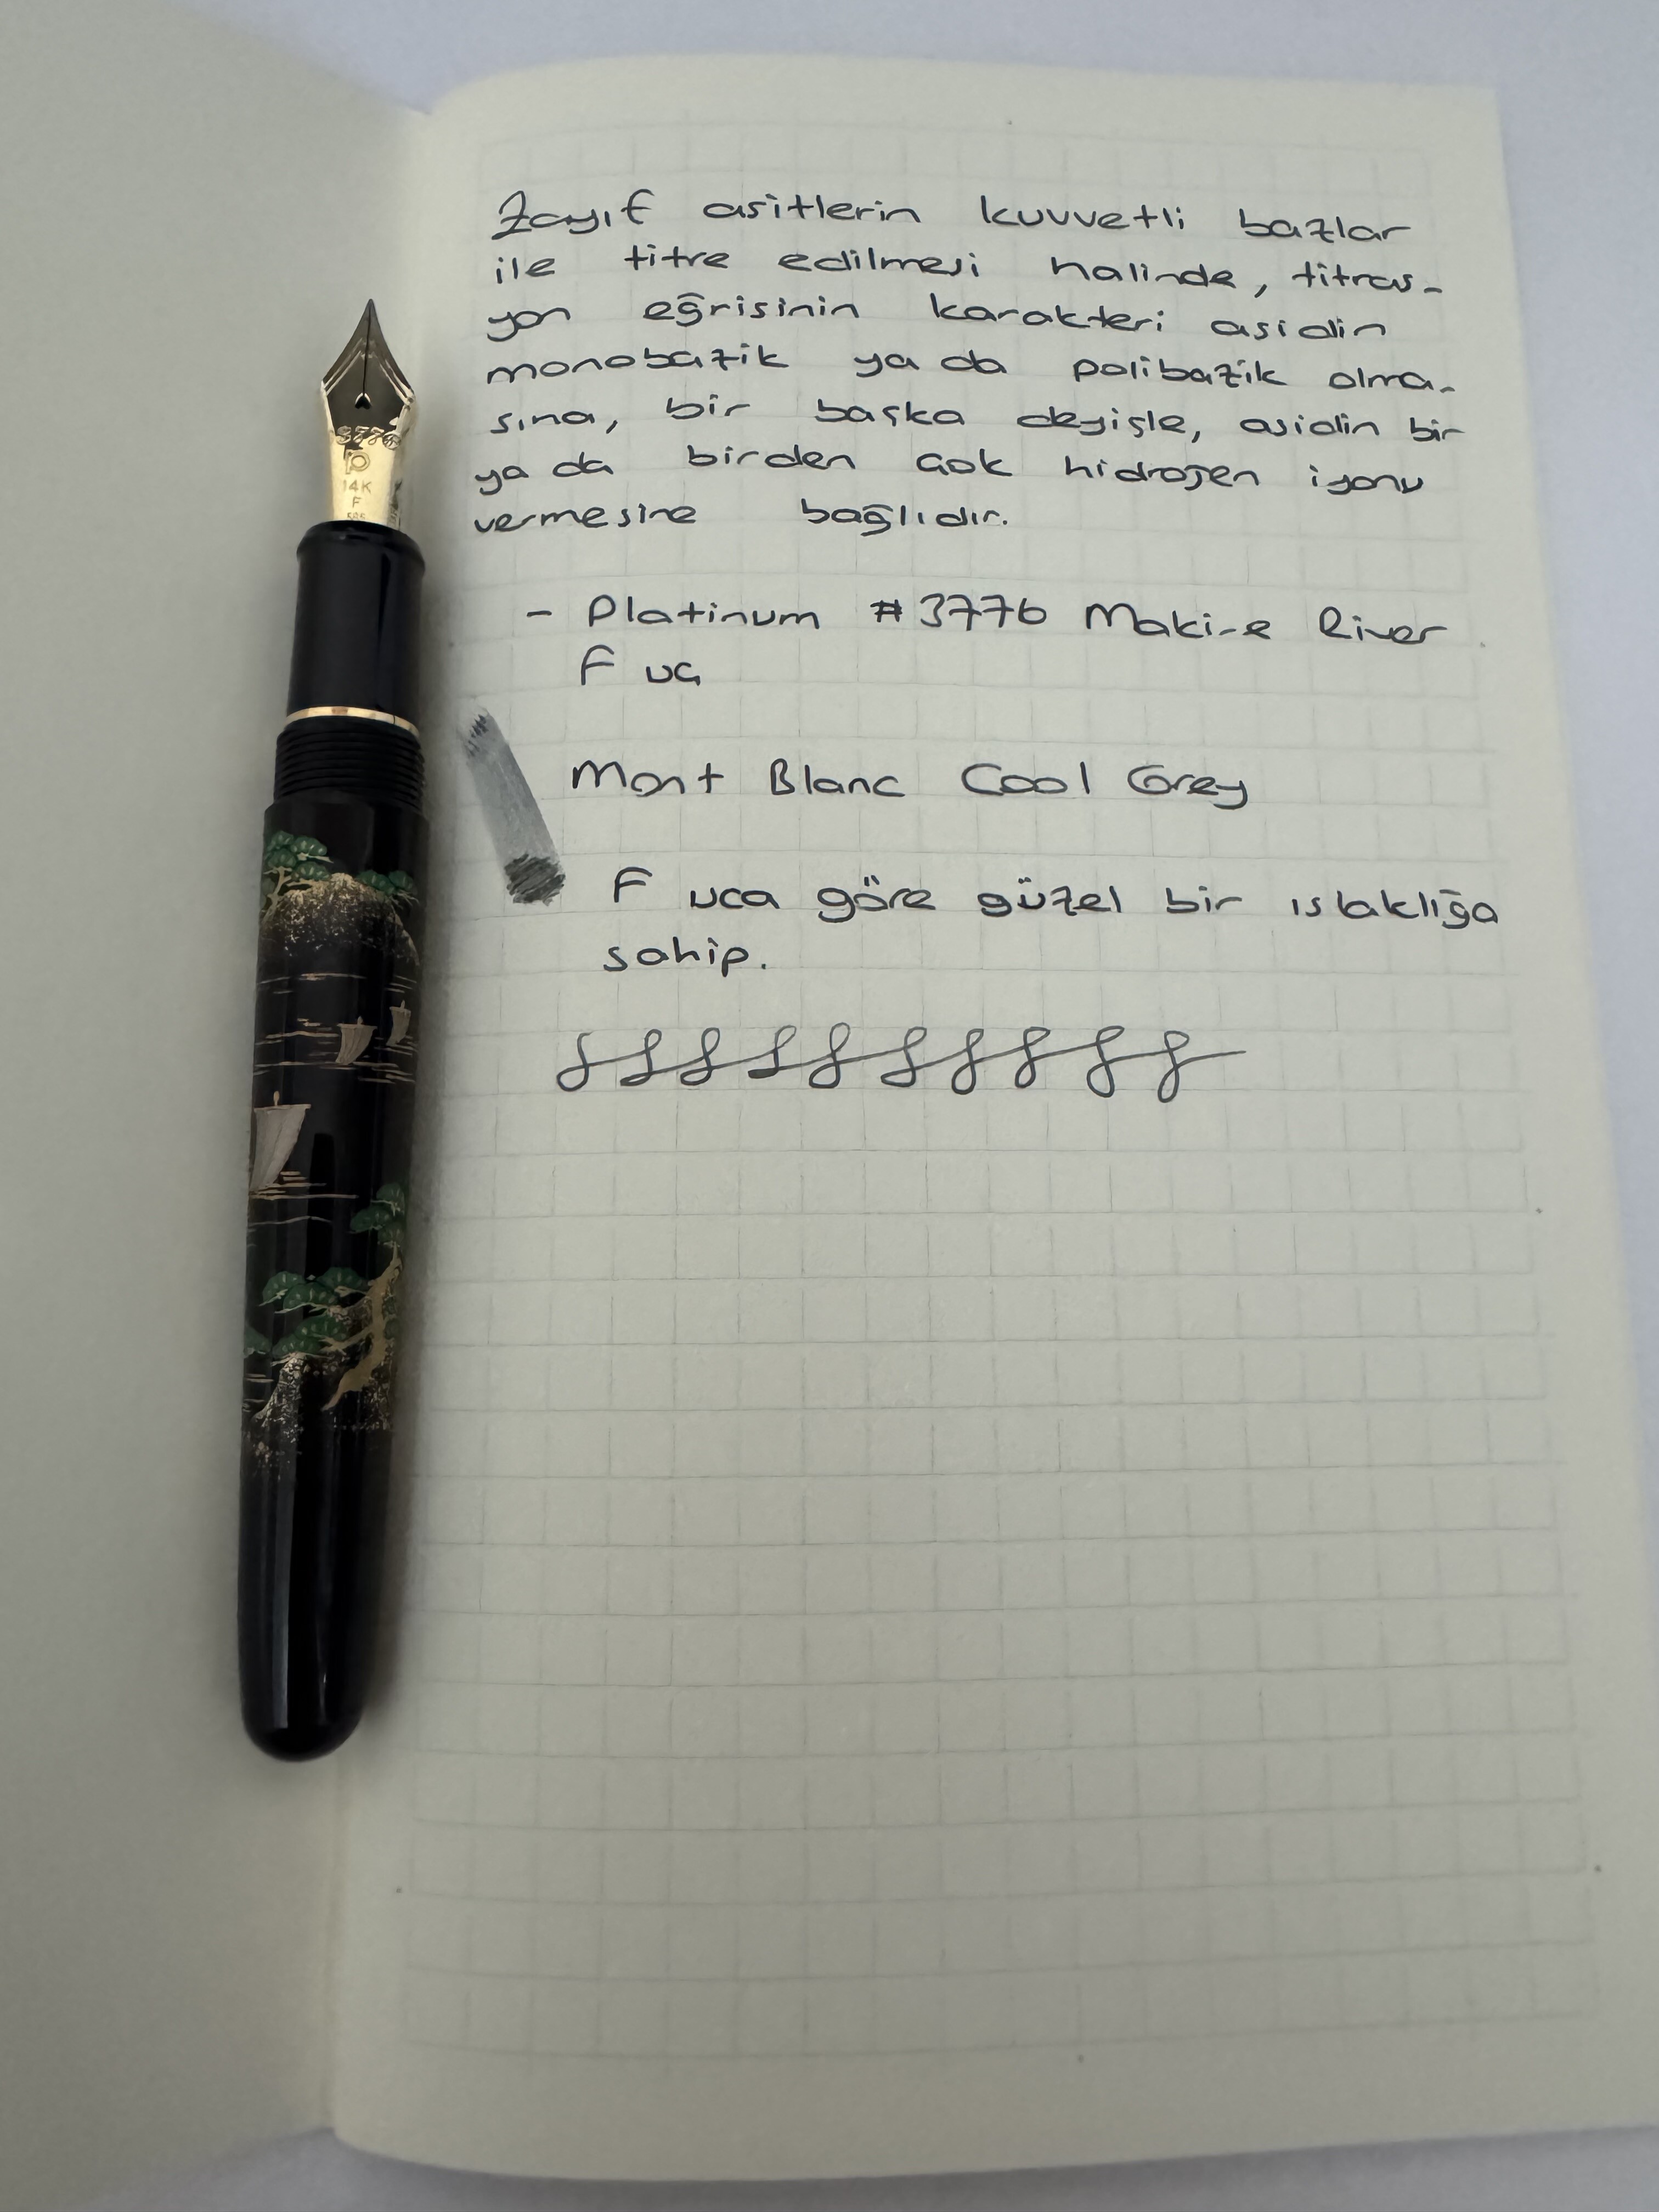 3776
P
14K
F
585
Zayıf asitlerin kuvvetli bazlar
ile titre edilmesi halinde, titras-
yon eğrisinin karakteri asidin
monobazik ya da polibazik olma-
sına, bir başka deyişle, asidin bir
ya da birden çok hidrojen iyonu
vermesine bağlıdır.
- Platinum #3776 Maki-e River
F uç
Mont Blanc Cool Grey
F uca göre güzel bir ıslaklığa
sahip.